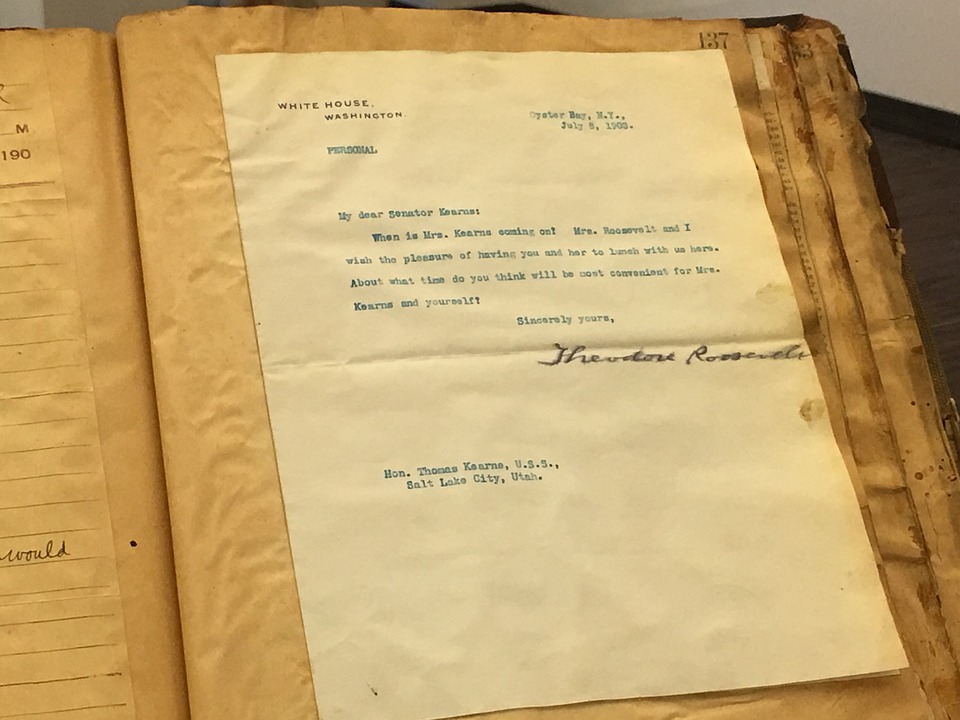 M
190
would
137
WHITE HOUSE,
WASHINGTON.
Oyster Bay, N.Y.,
July 8, 1903.
PERSONAL
My dear Senator Kearns:
When is Mrs. Kearns coming on? Mrs. Roosevelt and I
wish the pleasure of having you and her to lunch with us here.
About what time do you think will be most convenient for Mrs.
Kearns and yourself?
Sincerely yours,
Theodore Roosevelt
Hon. Thomas Kearns, U.S.S.,
Salt Lake City, Utah.